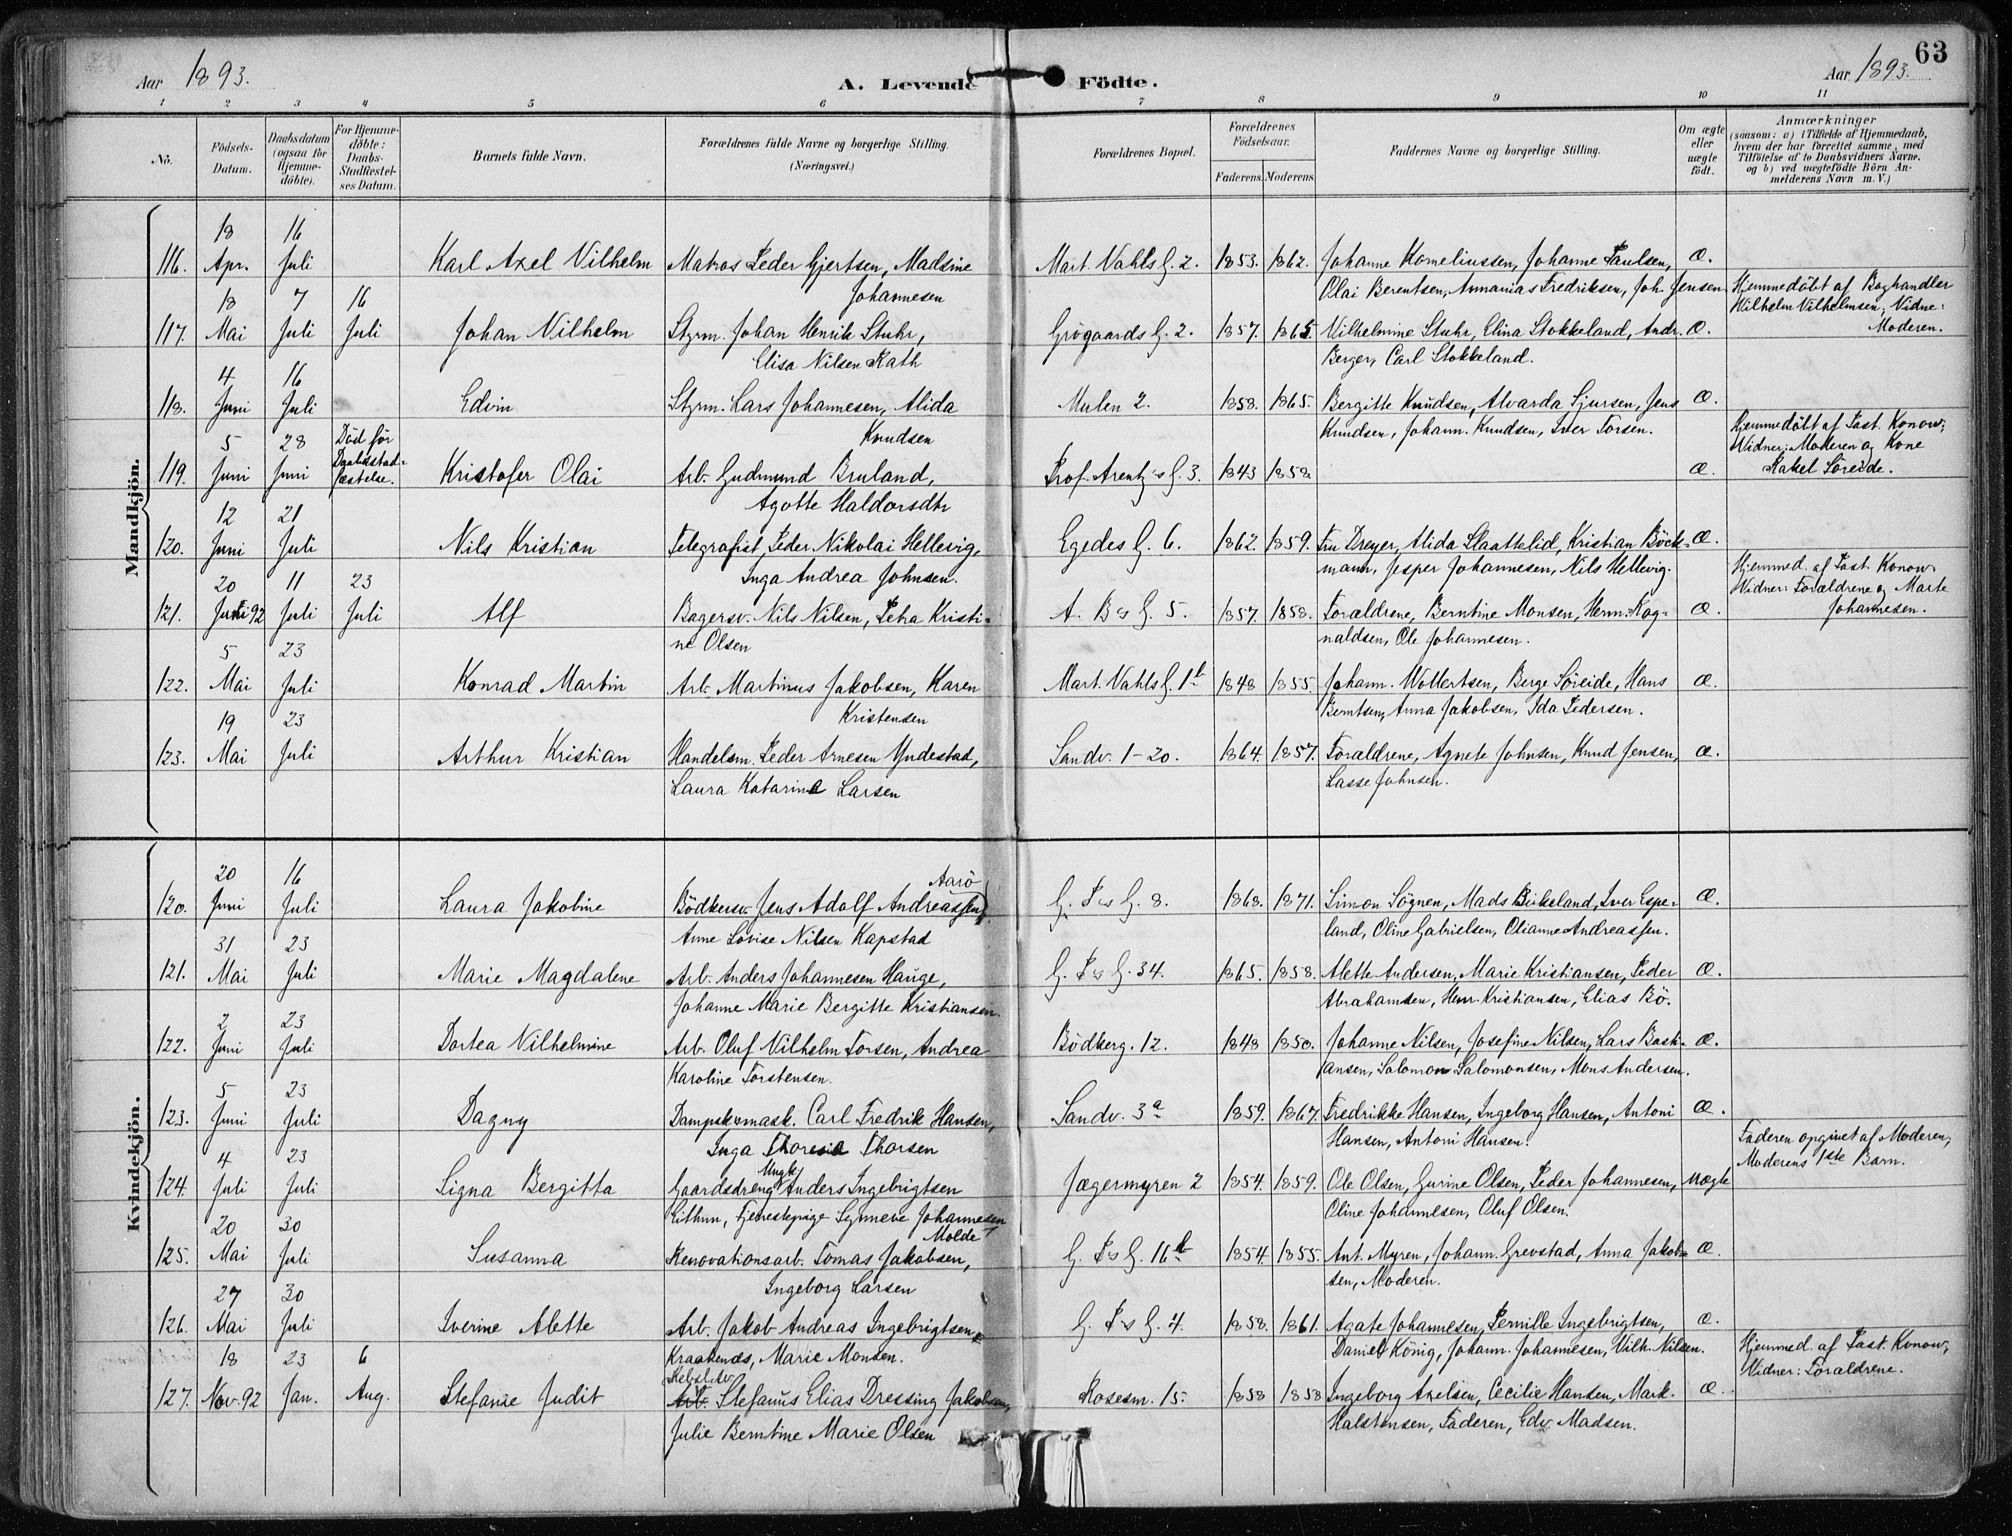 63
Aar 1893.
A. Levende Födte.
Aar 1893.
1 2 3 4 5 6 7 8 9 10 11
No.
Födsels-Datum.
Daabsdatum (ogsaa for Hjemme-döbte).
For Hjemme-döbte: Daabs-Stadfæstel-ses Datum.
Barnets fulde Navn.
Forældrenes fulde Navne og borgerlige Stilling.
(Næringsvei.)
Forældrenes Bopæl.
Forældrenes Födselsaar.
Faderens. Moderens.
Faddernes Navne og borgerlige Stilling.
Om ægte eller uægte födt.
Anmærkninger
(saasom: a) i Tilfælde af Hjemmedaab, hvem der har forrettet samme, med Tilföielse af to Daabsvidners Navne. og b) ved uægtefödte Börn An-melderens Navn m. V.)
Mandkjön.
116. 18 Apr. 16 Juli Karl Axel Vilhelm Matros Peder Gjertsen, Madsine Mart. Vahls G. 2. 1853. 1862. Johanne Korneliussen, Johanne Paulsen, Æ.
Johannesen Olai Berentsen, Annanias Fredriksen, Joh. Jensen
117. 18 Mai 7 Juli 16 Juli Johan Vilhelm Styrm. Johan Henrik Stuhr, Grøgaards G. 2. 1857. 1865. Vilhelmine Stuhr, Elina Stokkeland, Andr. Æ. Hjemmedöbt af Boghandler Wilhelm Vilhelmsen; Vidne: Moderen.
Elisa Nilsen Rath Berger, Carl Stokkeland.
118. 4 Juni 16 Juli Edvin Styrm. Lars Johannesen, Alida Mulen 2. 1858. 1865. Bergitte Knudsen, Alvarda Sjursen, Jens Æ.
Knudsen Knudsen, Johann. Knudsen, Iver Torsen.
119. 5 Juni 28 Juni Död før Daabsstad-fæstelse. Kristofer Olai Arb. Gudmund Bruland, Prof. Arentz's G. 3. 1843 1858. Æ. Hjemmedöbt af Past. Konow; Vidner: Moderen og Kone Rakel Søreide.
Agotte Haldorsdtr
120. 12 Juni 21 Juli Nils Kristian Telegrafist Peder Nikolai Hellevig, Egedes G. 6. 1862. 1859. Fru Dreyer, Alida Slaattelid, Kristian Böck- Æ.
Inga Andrea Johnsen. mann, Jesper Johannesen, Nils Hellevig.
121. 20 Juni 92 11 Juli 23 Juli Alf Bagersv. Nils Nilsen, Petra Kristi- A. Bs G. 5. 1857. 1858. Forældrene, Berntine Monsen, Herm. Rag- Æ. Hjemmed. af Past. Konow. Vidner: Forældrene og Marte Johannesen.
ne Olsen naldsen, Ole Johannesen.
122. 5 Mai 23 Juli Konrad Martin Arb. Martinus Jakobsen, Karen Mart. Vahls G. 1b 1848 1855. Johann. Wollertsen, Berge Søreide, Hans Æ.
Kristensen Berntsen, Anna Jakobsen, Ida Pedersen.
123. 19 Mai 23 Juli Arthur Kristian Handelsm. Peder Arnesen Yndestad, Sandv. 1-20. 1864. 1857. Forældrene, Agnete Johnsen, Knud Jensen, Æ.
Laura Katarina Larsen Lasse Johnsen.
Kvindekjön.
120. 20 Juni 16 Juli Laura Jakobine Bödkersv. Jens Adolf Andreassen Aarö, G. Ps G. 8. 1868. 1871. Simon Søgnen, Mads Birkeland, Iver Espe- Æ.
Anne Lovise Nilsen Kapstad land, Oline Gabrielsen, Olianne Andreassen.
121. 31 Mai 23 Juli Marie Magdalene Arb. Anders Johannesen Hauge, G. Ps G. 34. 1865. 1858. Alette Andersen, Marie Kristiansen, Peder Æ.
Johanne Marie Bergitte Kristiansen. Abrahamsen, Henr. Kristiansen, Elias Bö.
122. 2 Juni 23 Juli Dortea Vilhelmine Arb. Oluf Vilhelm Torsen, Andrea Bödkerg. 12. 1848 1850. Johanne Nilsen, Josefine Nilsen, Lars Bast- Æ.
Karoline Torstensen. iansen, Salomon Salomonsen, Mons Andersen.
123. 5 Juni 23 Juli Dagny Dampsk.mask. Carl Fredrik Hansen, Sandv. 3a 1859. 1867. Fredrikke Hansen, Ingeborg Hansen, Antoni Æ.
Inga Thoresia Thorsen Hansen, Antoni Hansen.
124. 4 Juli 23 Juli Signa Bergitta Gaardsdreng Ungk. Anders Ingebrigtsen Jægermyren 2 1854. 1859. Ole Olsen, Gurine Olsen, Peder Johannesen, Uægte Faderen opgivet af Moderen; Moderens 1ste Barn.
Githun, Tjenestepige Synneve Johannesen Molde Oline Johannesen, Oluf Olsen.
125. 20 Mai 30 Juli Susanna Renovationsarb. Tomas Jakobsen, G. Ps G. 16b 1854. 1855. Ant. Myren, Johann. Grevstad, Anna Jakob- Æ.
Ingeborg Larsen sen, Moderen.
126. 27 Mai 30 Juli Iverine Alette Arb. Jakob Andreas Ingebrigtsen G. Ps G. 4. 1858. 1861. Agate Johannesen, Pernille Ingebrigtsen, Æ.
Kraakenæs, Marie Monsen. Daniel König, Johann. Johannesen, Vilh. Nilsen.
127. 18 Nov. 92 23 Jan. 6 Aug. Stefanie Judit Arb. Stefanus Elias Dressing Jakobsen, Rosesm. 15. 1858 1858 Ingeborg Axelsen, Cecilie Hansen, Mark. Æ. Hjemmed. af Past. Konow; Vidner: Forældrene.
Julie Berntine Marie Olsen Halstensen, Faderen, Edv. Madsen.